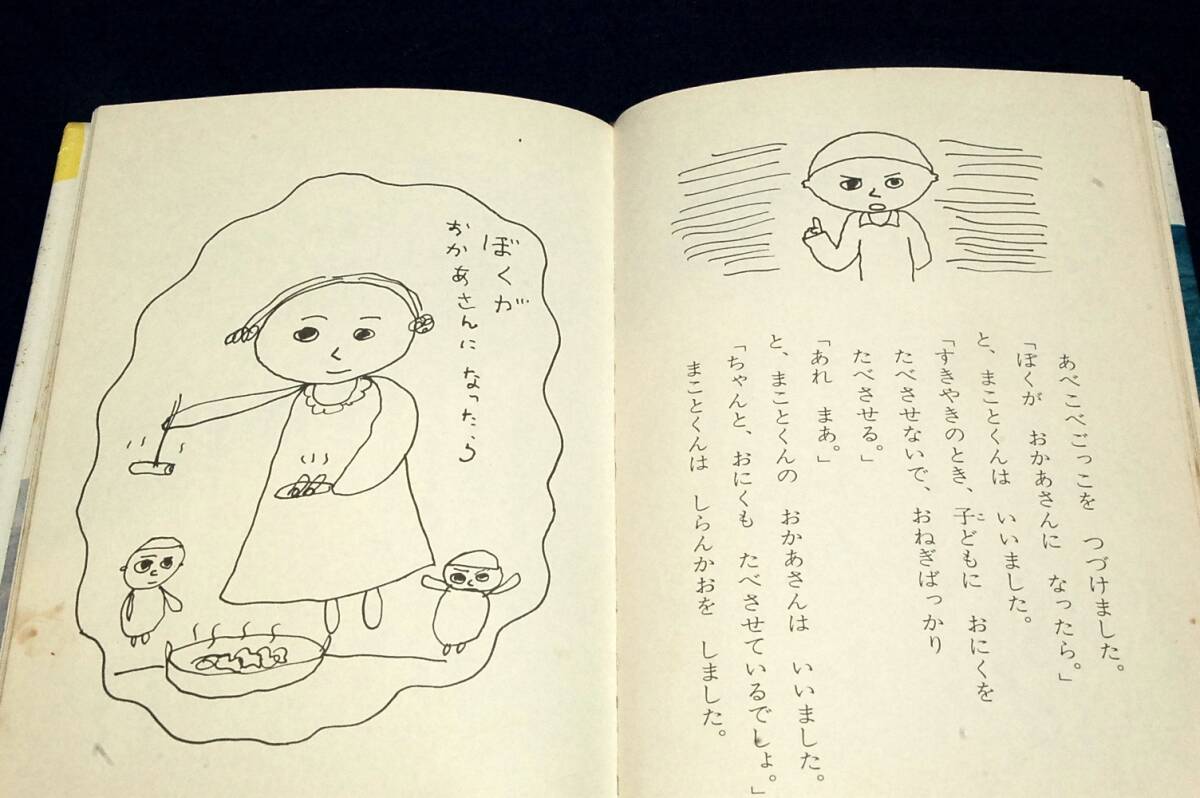 あべこべごっこを　つづけました。
「ぼくが　おかあさんに　なったら。」
と、まことくんは　いいました。
「すきやきのとき、子どもに　おにくを
たべさせないで、おねぎばっかり
たべさせる。」
「あれ　まあ。」
と、まことくんの　おかあさんは　いいました。
「ちゃんと、おにくも　たべさせているでしょ。」
まことくんは　しらんかおを　しました。
ぼくが
おかあさんになったら